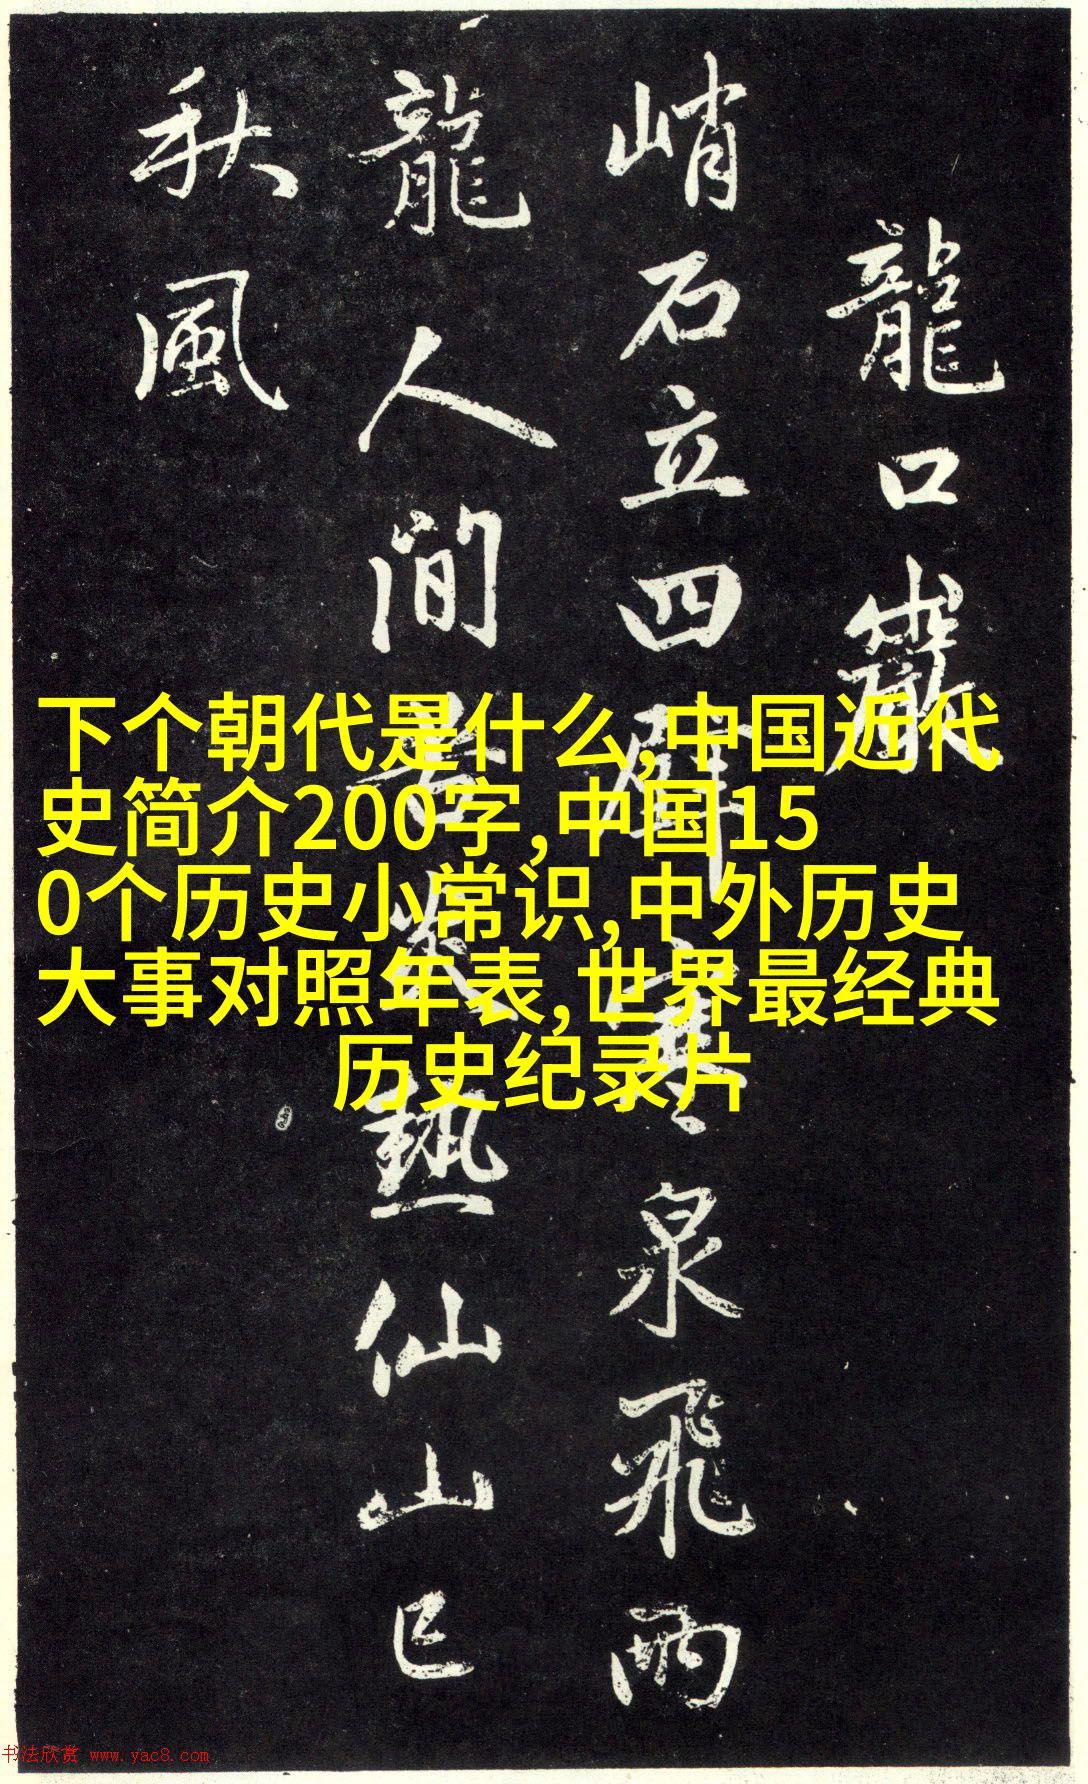 龍口巖
峭石立四壁寒泉飛兩
龍人間苦炎熱仙山已
秋風
下个朝代是什么,中国近代
史简介200字,中国15
0个历史小常识,中外历史
大事对照年表,世界最经典
历史纪录片
书法欣赏 www.yac8.com